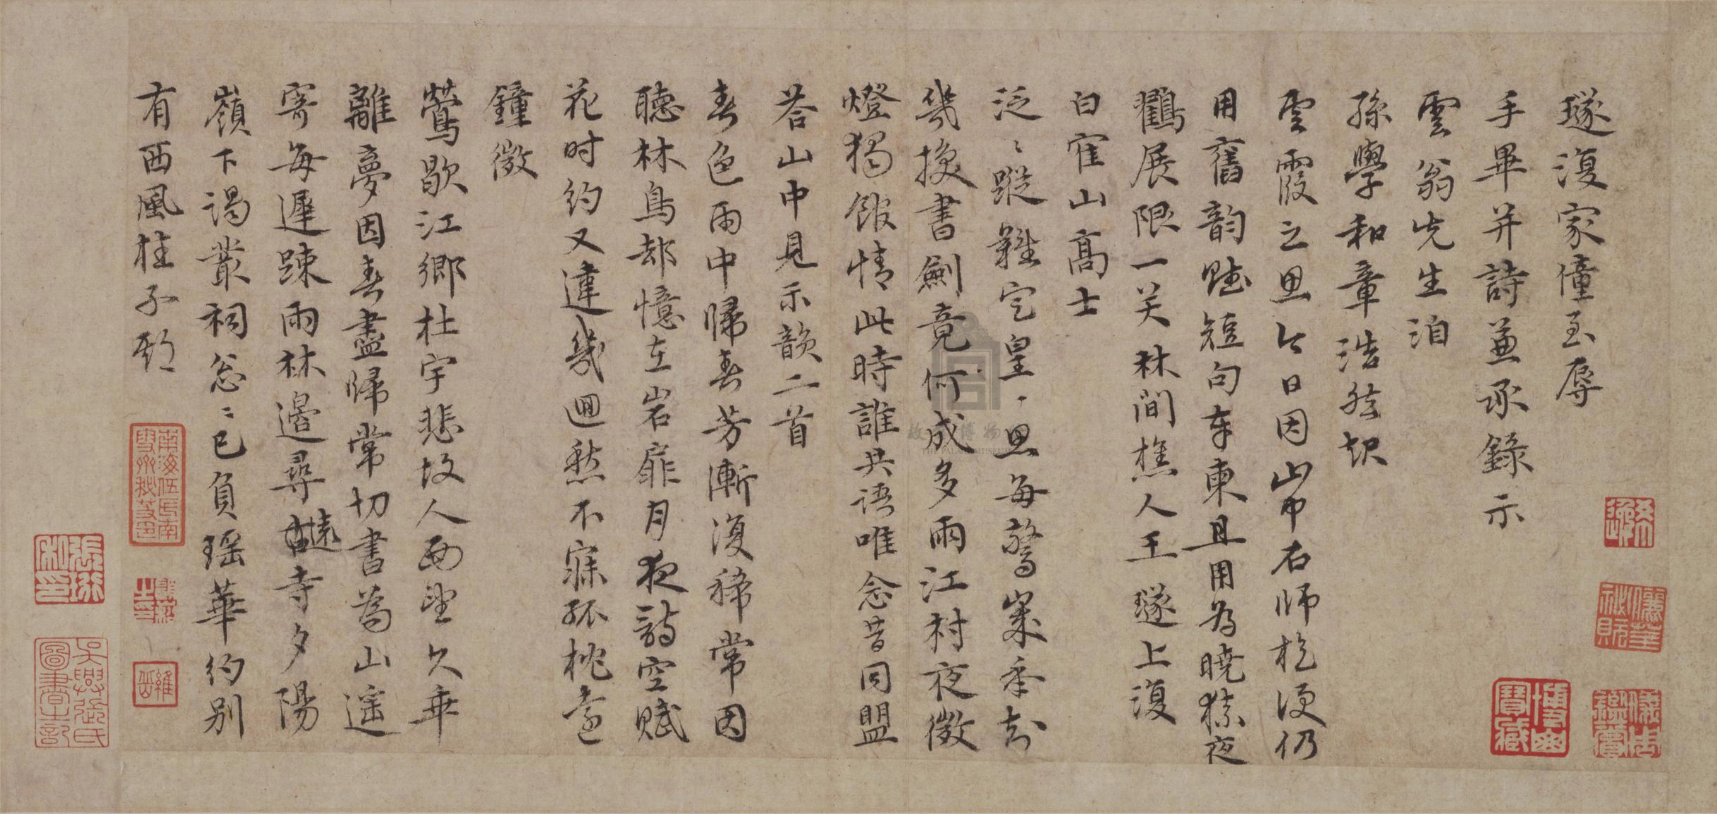 璲復家僮至辱
手畢并詩兼承錄示
雲翁先生洎
孫學和章浩然
雲霞之思今日因山甫右師枉過仍
用舊韵賦短句奉柬且用為曉猿夜
鶴展限一笑林間樵人王璲上復
白雀山高士
泛泛蹤難定皇皇思每驚業
幾換書劍竟何成多雨江村夜微
燈獨館情此時誰共語唯念昔同盟
荅山中見示韻二首
春色雨中歸春芳漸復稀常因
聽林鳥却憶在岩扉月夜詩空賦
花時約又違幾迴愁不寐孤枕遠
鐘微
鶯歇江鄉杜宇悲故人西望久垂
離夢因春盡歸常切書為山遙
寄每遲踈雨林邊尋遠寺夕陽
嶺下謁叢祠忩忩已負瑤華約別
有西風桂子